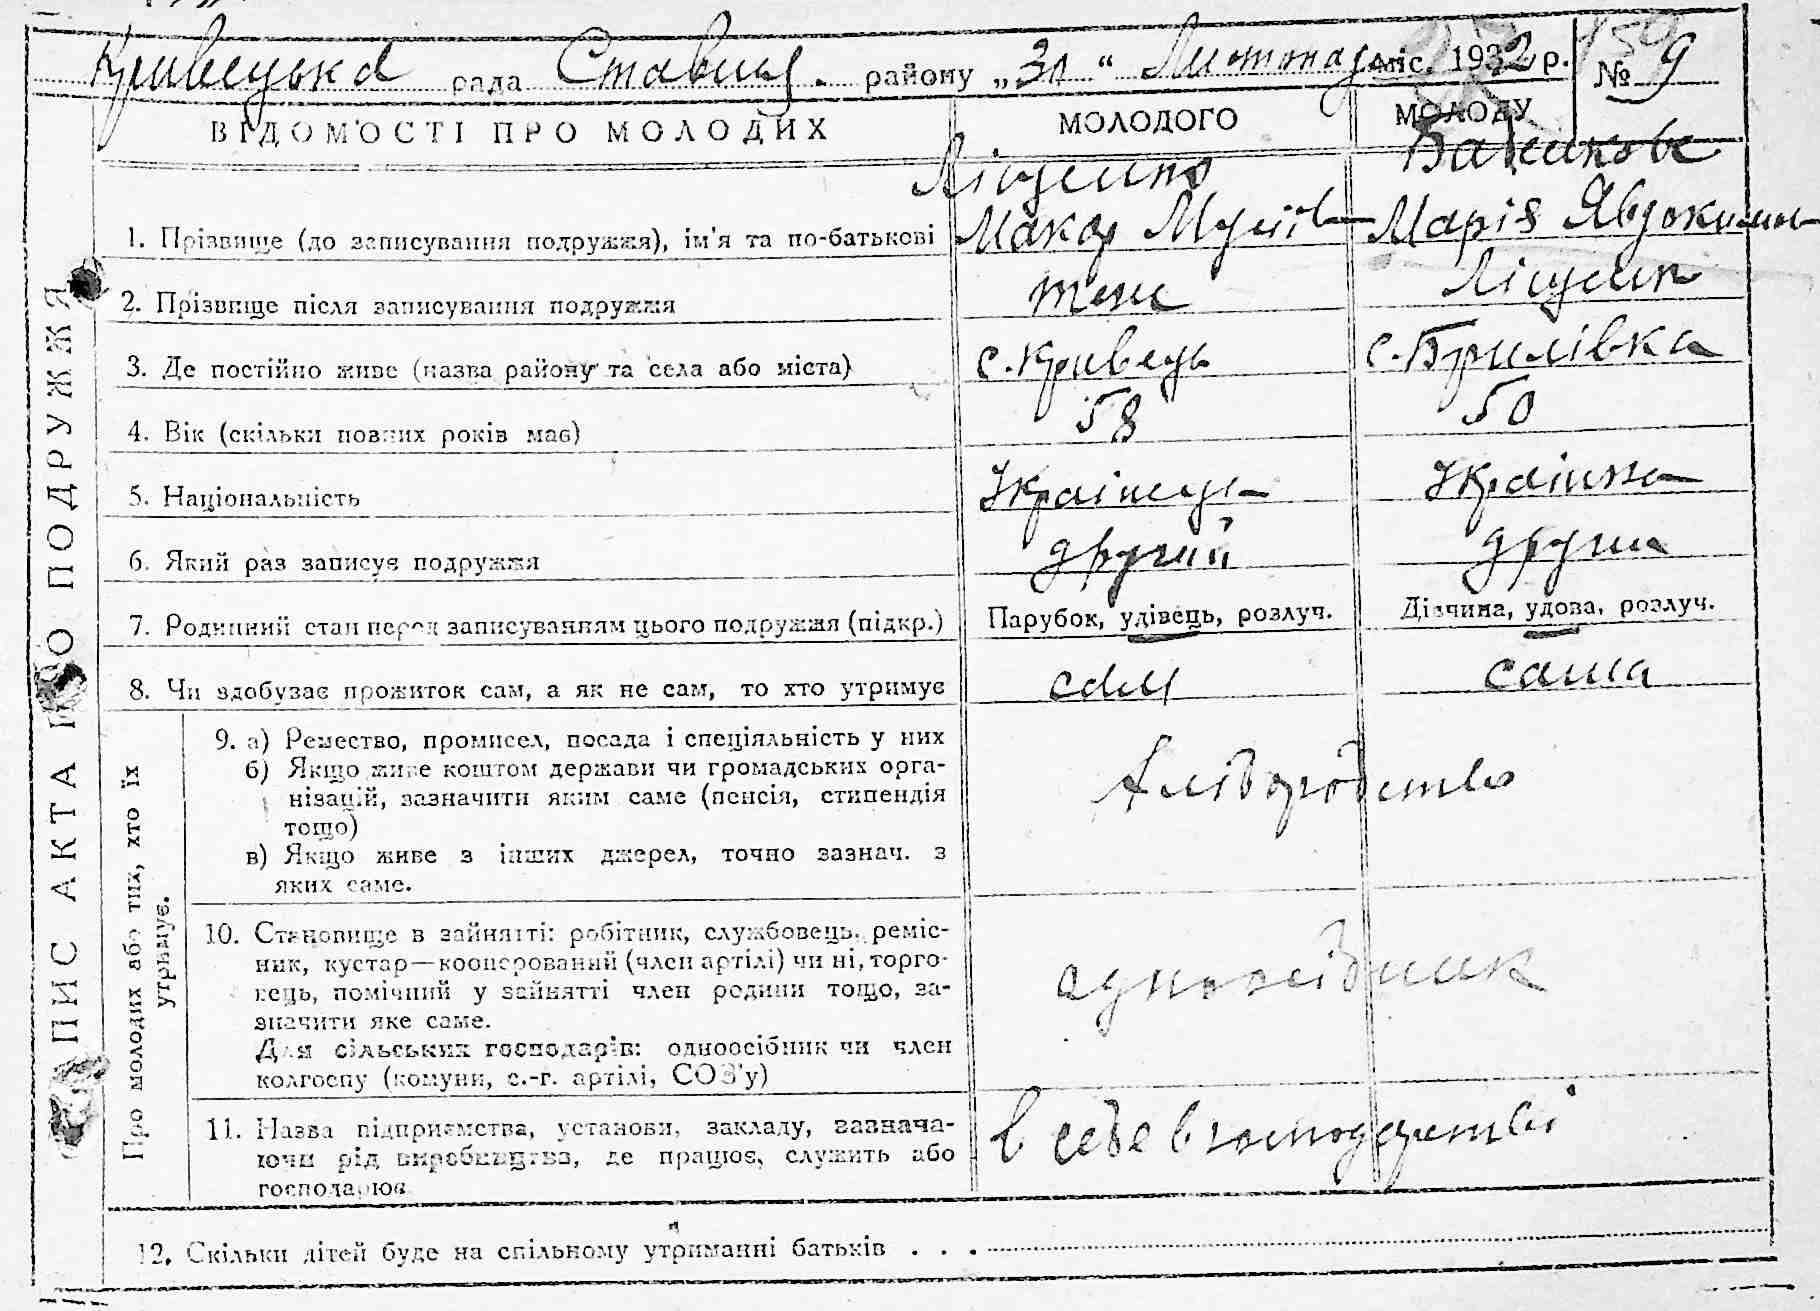 Кривецька рада Ставищ. району „30“ Листопад міс. 1932 р. № 9
ВІДОМОСТІ ПРО МОЛОДИХ
МОЛОДОГО
МОЛОДУ
ЗАПИС АКТА ПРО ПОДРУЖЖЯ
1. Прізвище (до записування подружжя), ім'я та по-батькові
Макар
Марія Явдокимів
2. Прізвище після записування подружжя
теж
3. Де постійно живе (назва району та села або міста)
с. Кривець
с. Брилівка
4. Вік (скільки повних років має)
58
50
5. Національність
Українець
Українка
6. Який раз записує подружжя
другий
други
7. Родинний стан перед записуванням цього подружжя (підкр.)
Парубок, удівець, розлуч.
Дівчина, удова, розлуч.
8. Чи здобуває прожиток сам, а як не сам, то хто утримує
сам
сама
Про молодих або тих, хто їх
утримує.
9. а) Ремество, промисел, посада і спеціяльність у них
б) Якщо живе коштом держави чи громадських орга-
нізацій, зазначити яким саме (пенсія, стипендія
тощо)
в) Якщо живе з інших джерел, точно зазнач. з
яких саме.
Хліборобство
10. Становище в зайнятті: робітник, службовець, реміс-
ник, кустар—кооперований (член артілі) чи ні, торго-
вець, помічний у зайнятті член родини тощо, за-
значити яке саме.
Для сільських господарів: одноосібник чи член
колгоспу (комуни, с.-г. артілі, СОЗ'у)
одноосібник
11. Назва підприємства, установи, закладу, зазнача-
ючи рід виробництва, де працює, служить або
господарює
в себе в господарстві
12. Скільки дітей буде на спільному утриманні батьків . . .